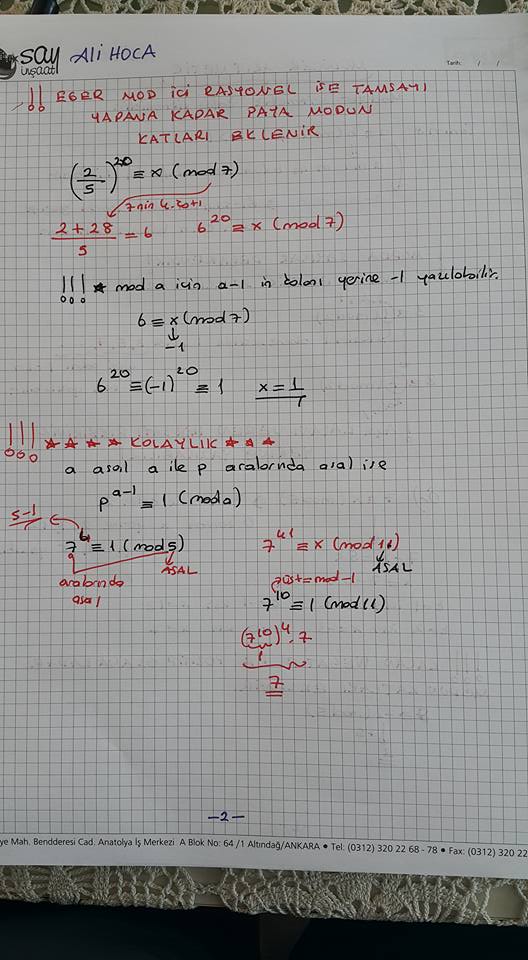 say
inşaat
ALİ HOCA
Tarih: / /
!! EĞER MOD İÇİ RASYONEL İSE TAMSAYI
YAPANA KADAR PAYA MODUN
KATLARI EKLENİR
(2/5)^20 ≡ x (mod 7)
7nin 4. katı
2+28/5 = 6 6^20 ≡ x (mod 7)
!!! * mod a için a-1 in kalanı yerine -1 yazılabilir.
6 ≡ x (mod 7)
↓
-1
6^20 ≡ (-1)^20 ≡ 1 x = 1
!!! ★ ★ ★ ★ KOLAYLIK ★ ★ ★
a asal a ile p aralarında asal ise
p^a-1 ≡ 1 (mod a)
5-1
7^4 ≡ 1 (mod 5)
ASAL
aralarında
asal
7^41 ≡ x (mod 11)
ASAL
üst = mod-1
7^10 ≡ 1 (mod 11)
(7^10)^4 . 7
1
7
-2-
ye Mah. Bendderesi Cad. Anatolya İş Merkezi A Blok No: 64 /1 Altındağ/ANKARA • Tel: (0312) 320 22 68 - 78 • Fax: (0312) 320 22